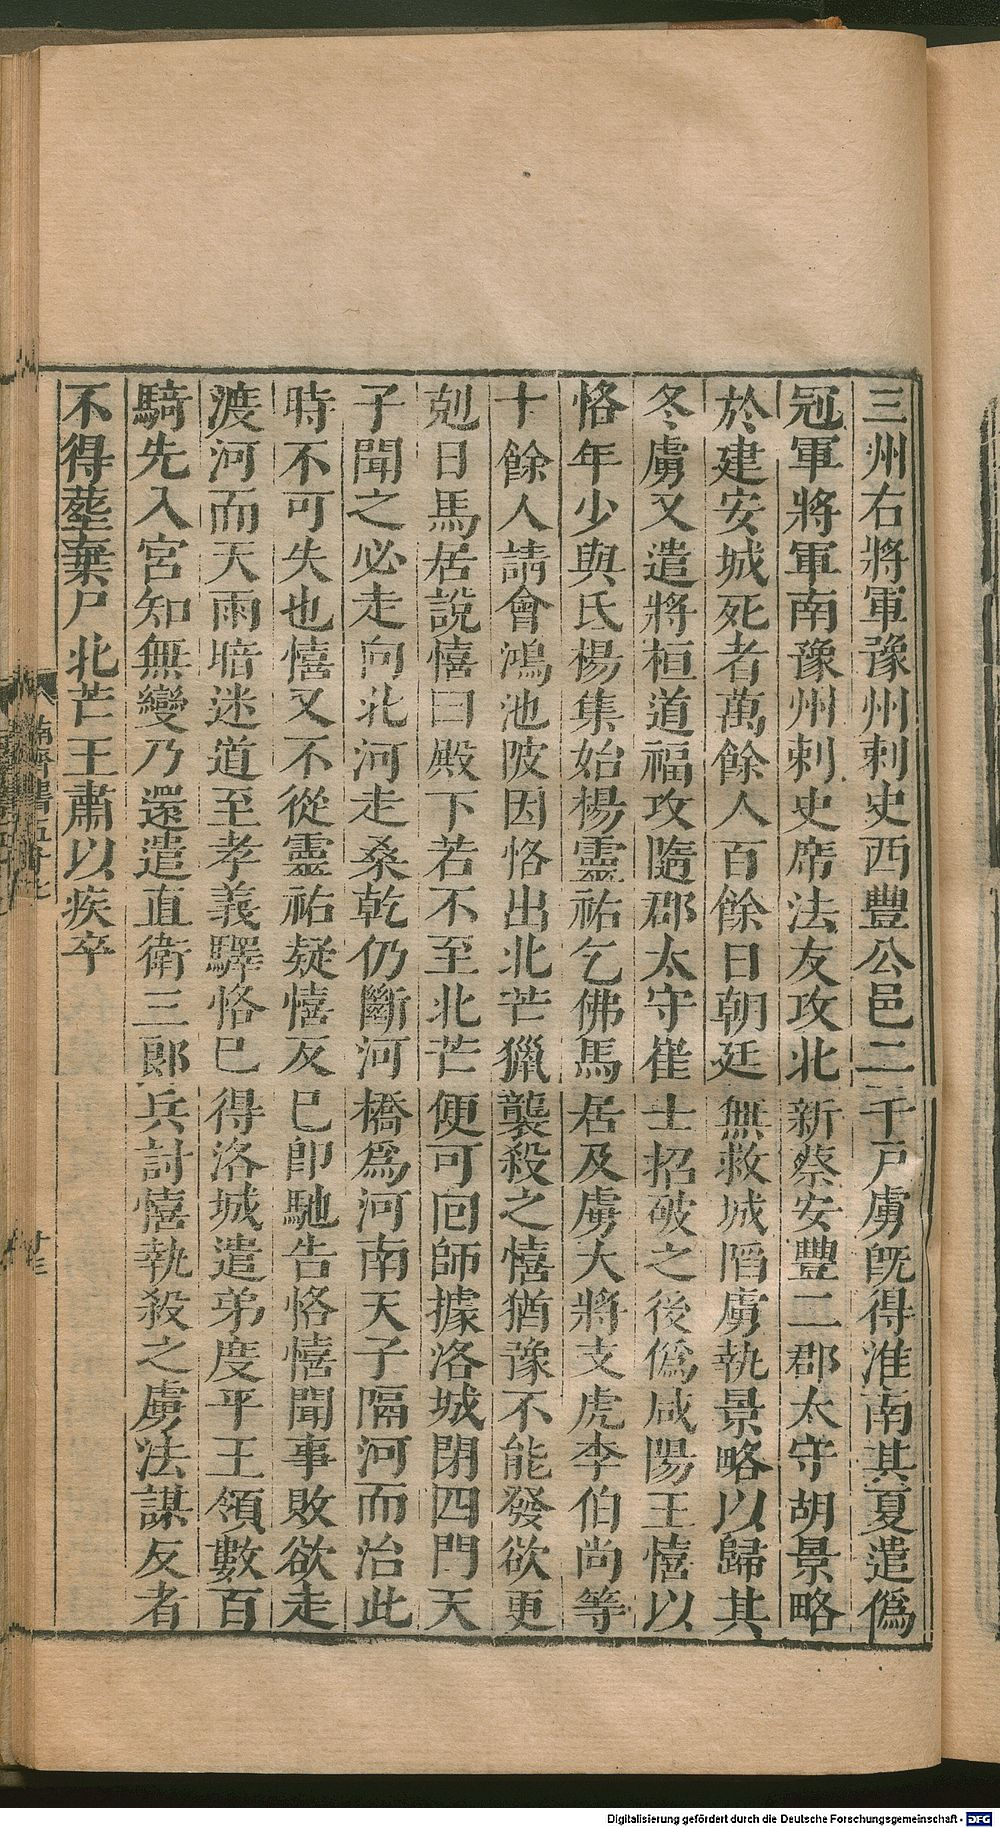 三州右將軍豫州刺史西豐公邑二千戸虜旣得淮南其夏遣僞
冠軍將軍南豫州刺史席法友攻北新蔡安豐二郡太守胡景略
於建安城死者萬餘人百餘日朝廷無救城䧟虜執景略以歸其
冬虜又遣將桓道福攻隨郡太守崔士招破之後僞咸陽王憘以
恪年少與氏楊集始楊靈祐乞佛馬居及虜大將支虎李伯尚等
十餘人請會鴻池陂因恪出北芒獵襲殺之憘猶豫不能發欲更
剋日馬居說憘曰殿下若不至北芒便可囘師據洛城閉四門天
子聞之必走向北河走桑乾仍斷河橋爲河南天子隔河而治此
時不可失也憘又不從靈祐疑憘反巳卽馳告恪憘聞事敗欲走
渡河而天雨暗迷道至孝義驛恪巳得洛城遣弟度平王領數百
騎先入宮知無變乃還遣直衛三郞兵討憘執殺之虜法謀反者
不得塟棄尸北芒王肅以疾卒